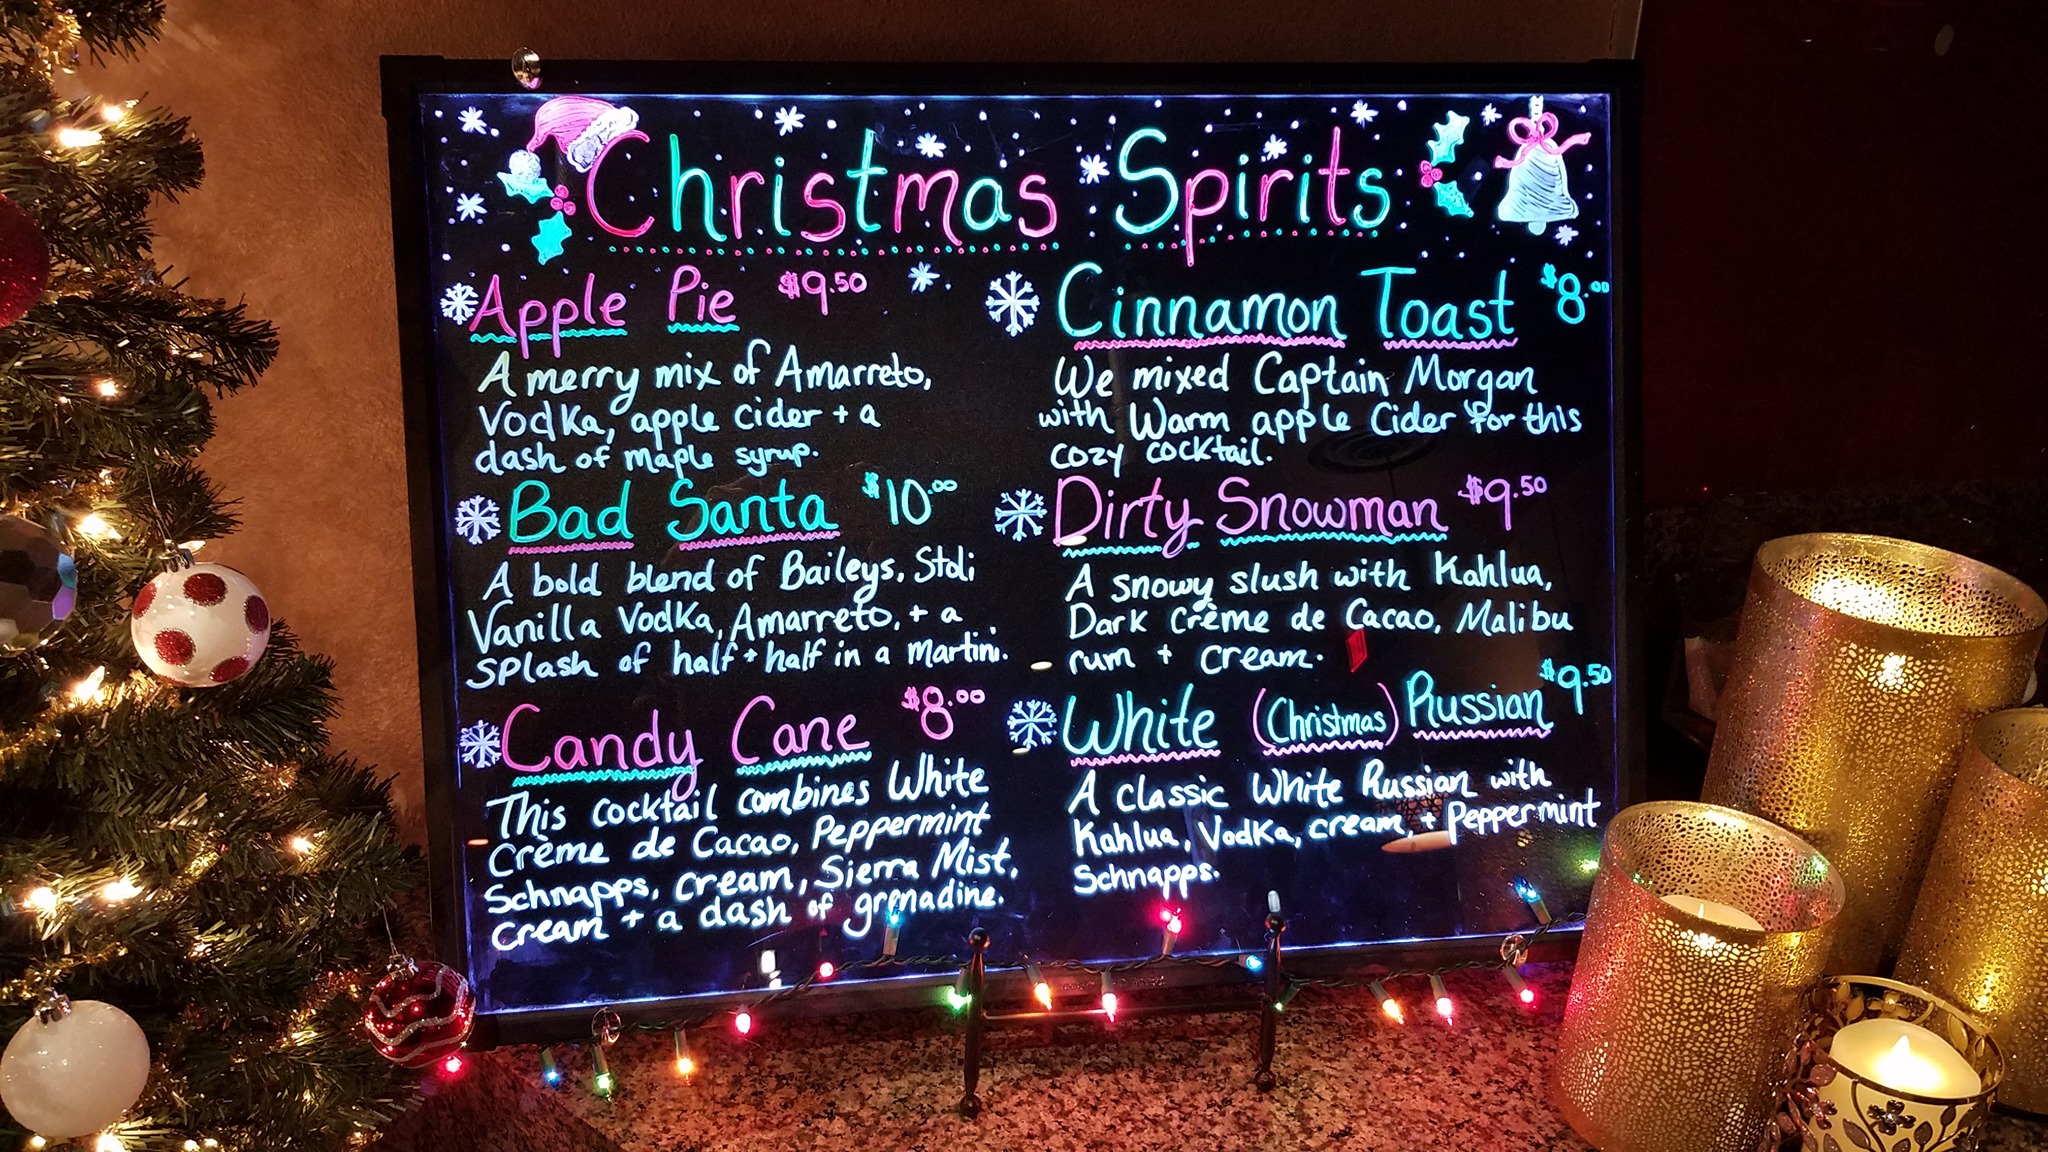 Christmas Spirits
Apple Pie $9.50
A merry mix of Amarreto,
Vodka, apple cider + a
dash of maple syrup.
Bad Santa $10.00
A bold blend of Baileys, Stoli
Vanilla Vodka, Amarreto, + a
splash of half + half in a martini.
Candy Cane $8.00
This cocktail combines White
Crème de Cacao, Peppermint
Schnapps, cream, Sierra Mist,
cream + a dash of grenadine.
Cinnamon Toast $8.00
We mixed Captain Morgan
with Warm apple Cider for this
cozy cocktail.
Dirty Snowman $9.50
A snowy slush with Kahlua,
Dark Crème de Cacao, Malibu
rum + cream.
White (Christmas) Russian $9.50
A classic White Russian with
Kahlua, Vodka, cream, + Peppermint
Schnapps.